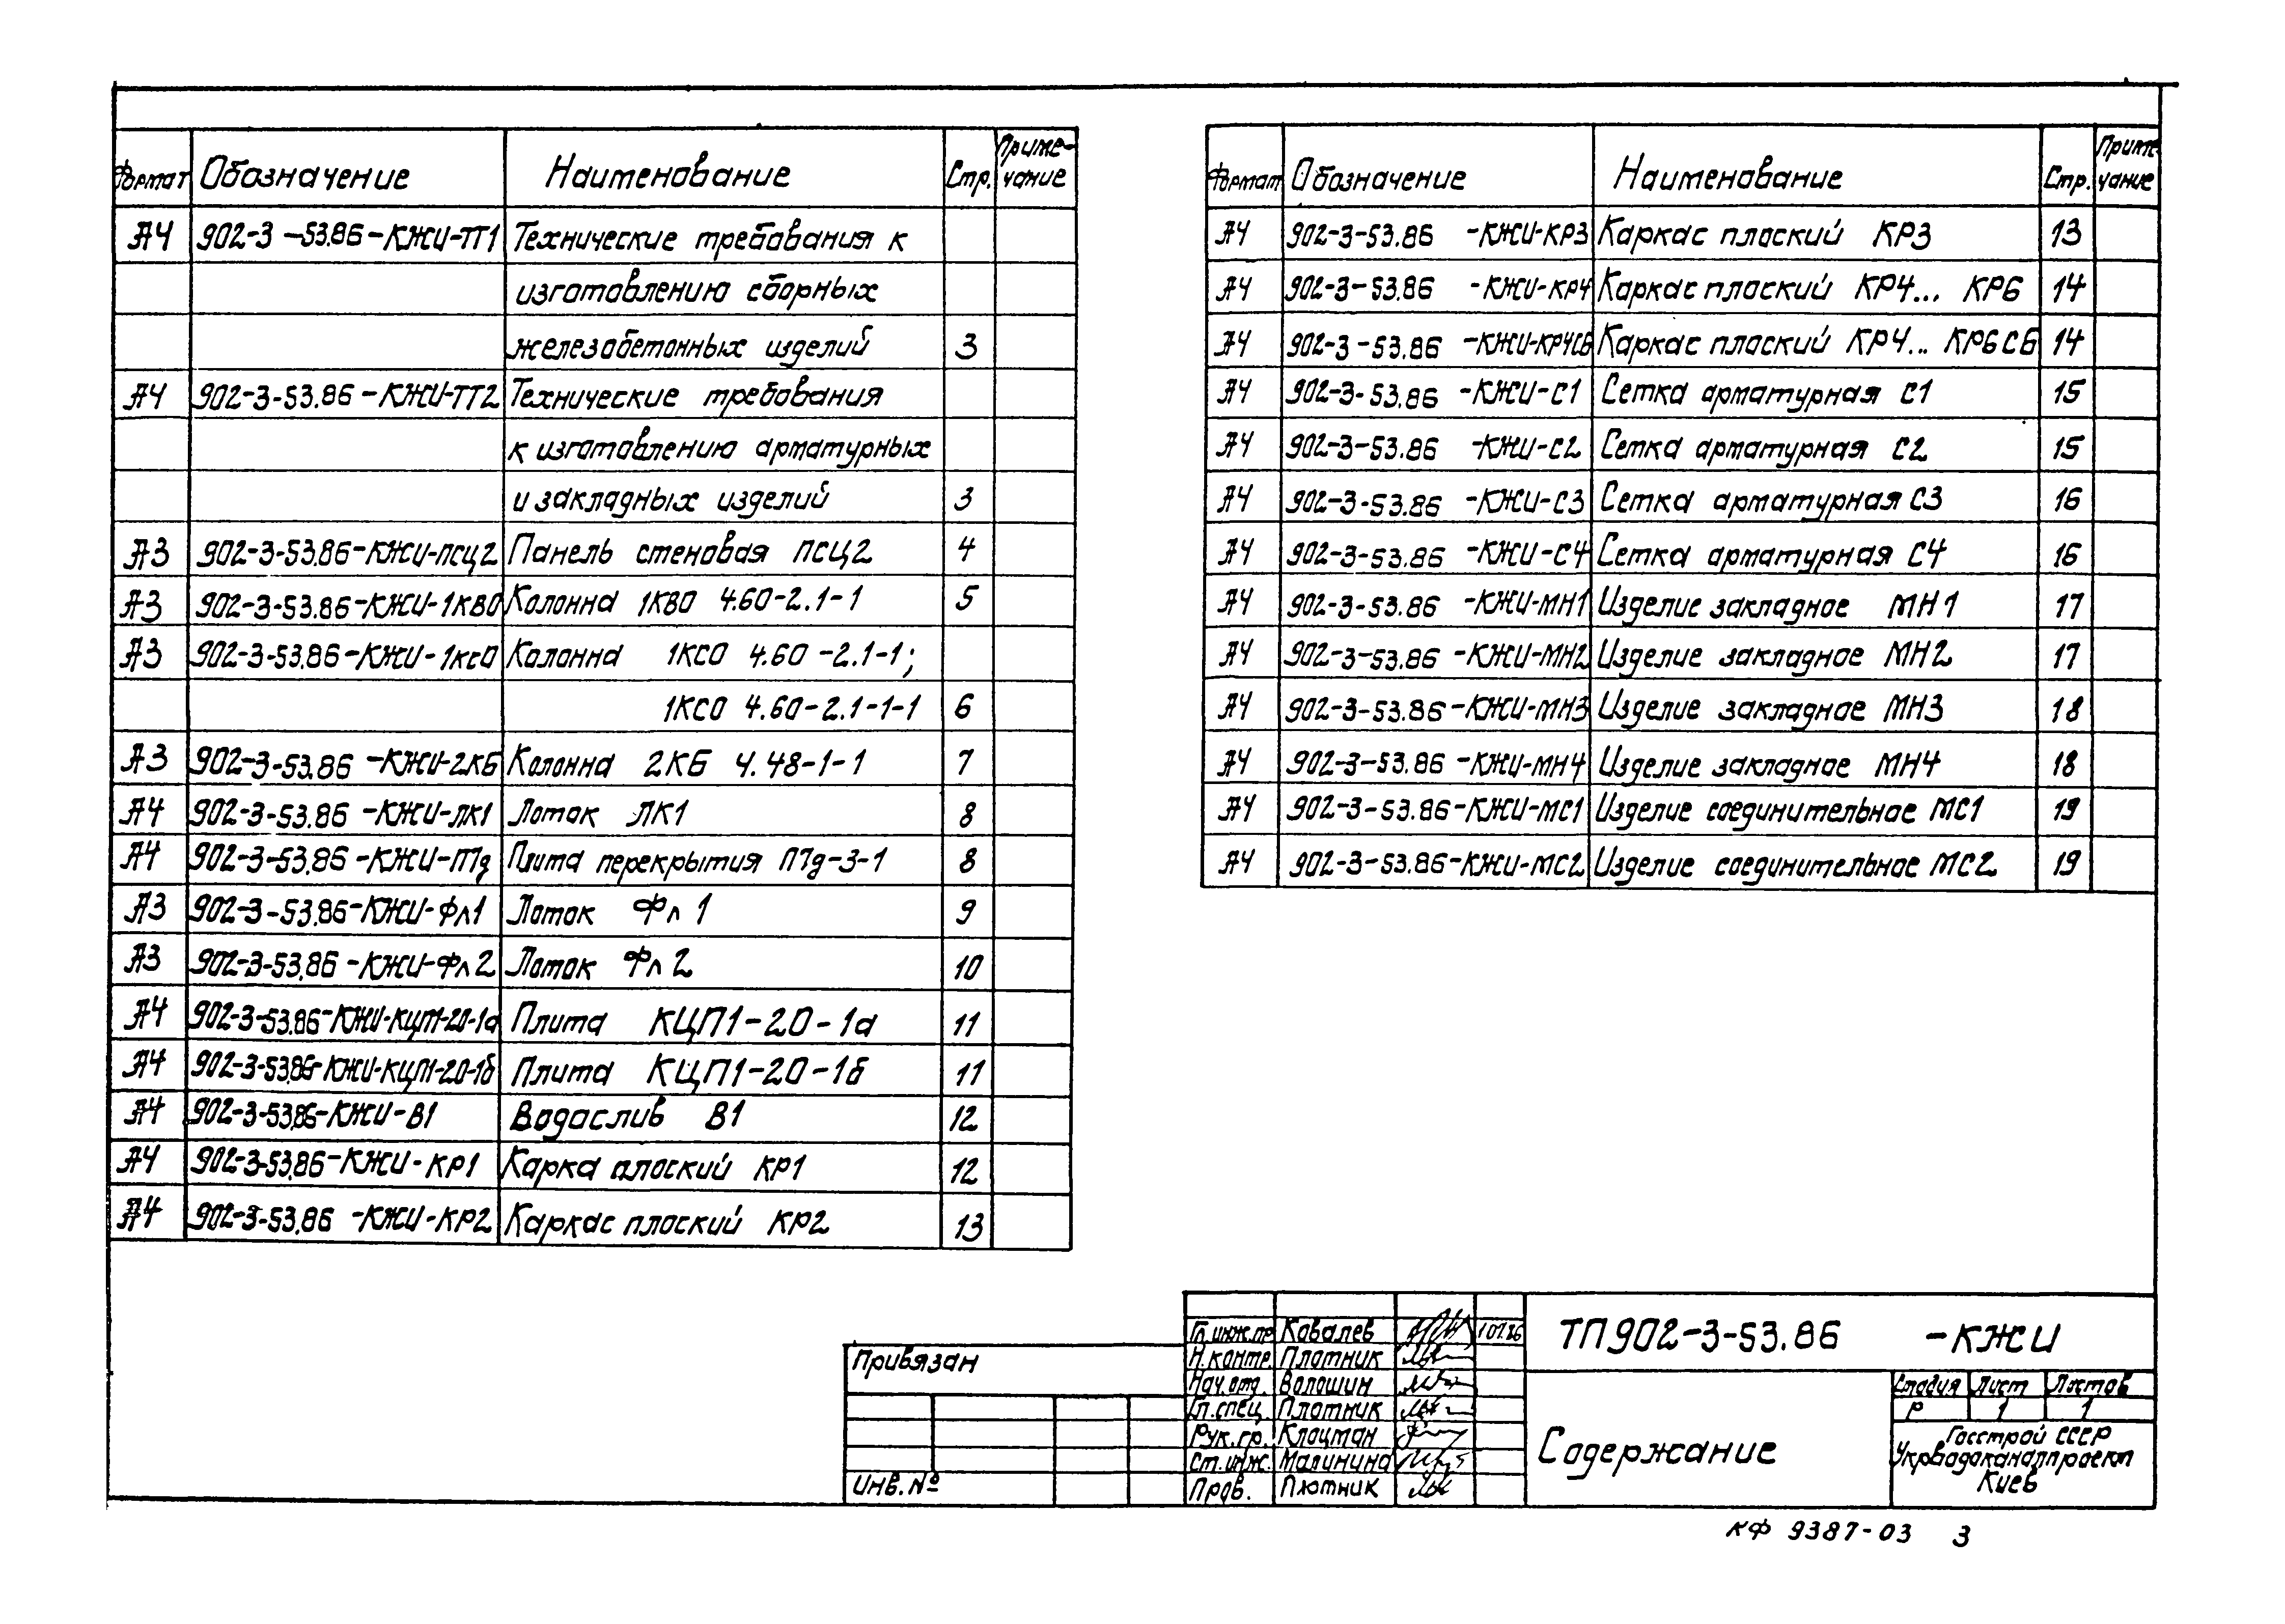 Формат Обозначение Наименование Стр. Приме-чание
А4 902-3-53.86-КЖИ-ТТ1 Технические требования к
изготовлению сборных
железобетонных изделий 3
А4 902-3-53.86-КЖИ-ТТ2 Технические требования
к изготовлению арматурных
и закладных изделий 3
А3 902-3-53.86-КЖИ-ПСЦ2 Панель стеновая ПСЦ2 4
А3 902-3-53.86-КЖИ-1КВО Колонна 1КВО 4.60-2.1-1 5
А3 902-3-53.86-КЖИ-1КСО Колонна 1КСО 4.60-2.1-1;
1КСО 4.60-2.1-1-1 6
А3 902-3-53.86-КЖИ-2КБ Колонна 2КБ 4.48-1-1 7
А4 902-3-53.86-КЖИ-ЛК1 Лоток ЛК1 8
А4 902-3-53.86-КЖИ-П7д Плита перекрытия П7д-3-1 8
А3 902-3-53.86-КЖИ-Фл1 Лоток Фл1 9
А3 902-3-53.86-КЖИ-Фл2 Лоток Фл2 10
А4 902-3-53.86-КЖИ-КЦП1-20-1а Плита КЦП1-20-1а 11
А4 902-3-53.86-КЖИ-КЦП1-20-1б Плита КЦП1-20-1б 11
А4 902-3-53.86-КЖИ-В1 Водослив В1 12
А4 902-3-53.86-КЖИ-КР1 Карка плоский КР1 12
А4 902-3-53.86-КЖИ-КР2 Каркас плоский КР2 13
Формат Обозначение Наименование Стр. Приме-чание
А4 902-3-53.86-КЖИ-КР3 Каркас плоский КР3 13
А4 902-3-53.86-КЖИ-КР4 Каркас плоский КР4... КР6 14
А4 902-3-53.86-КЖИ-КР4СБ Каркас плоский КР4... КР6СБ 14
А4 902-3-53.86-КЖИ-С1 Сетка арматурная С1 15
А4 902-3-53.86-КЖИ-С2 Сетка арматурная С2 15
А4 902-3-53.86-КЖИ-С3 Сетка арматурная С3 16
А4 902-3-53.86-КЖИ-С4 Сетка арматурная С4 16
А4 902-3-53.86-КЖИ-МН1 Изделие закладное МН1 17
А4 902-3-53.86-КЖИ-МН2 Изделие закладное МН2 17
А4 902-3-53.86-КЖИ-МН3 Изделие закладное МН3 18
А4 902-3-53.86-КЖИ-МН4 Изделие закладное МН4 18
А4 902-3-53.86-КЖИ-МС1 Изделие соединительное МС1 19
А4 902-3-53.86-КЖИ-МС2 Изделие соединительное МС2 19
Привязан
Инв.№
Гл.инж.пр Ковалев
Н.контр. Плотник
Нач.отд. Волошин
Гл.спец. Плотник
Рук.гр. Клоцман
Ст.инж. Малинина
Пров. Плотник
ТП902-3-53.86 -КЖИ
Содержание
Стадия Лист Листов
Р 1 1
Госстрой СССР
Укрводоканалпроект
Киев
КФ 9387-03 3